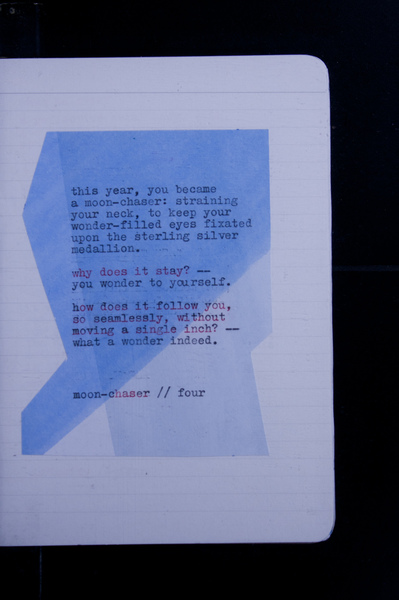 this year, you became
a moon-chaser: straining
your neck, to keep your
wonder-filled eyes fixated
upon the sterling silver
medallion.
why does it stay? --
you wonder to yourself.
how does it follow you,
so seamlessly, without
moving a single inch? --
what a wonder indeed.
moon-chaser // four